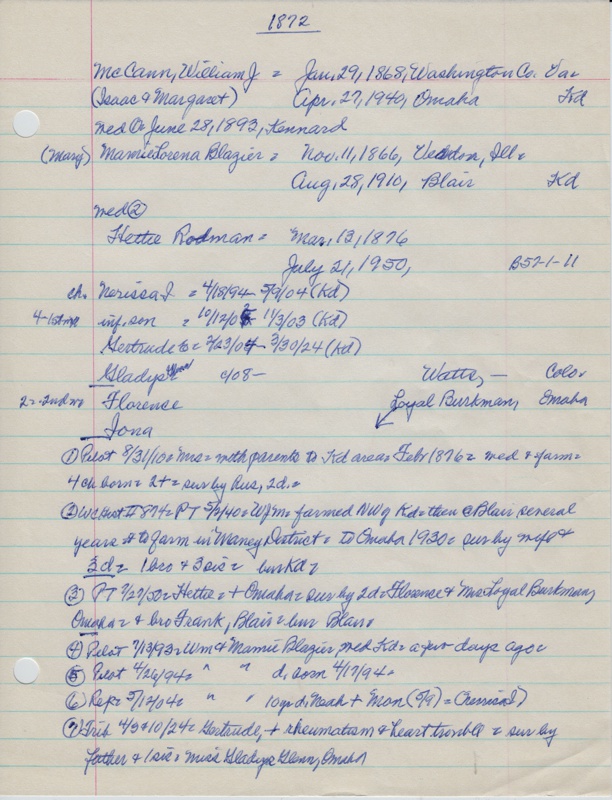 1872
McCann, William J = Jan. 29, 1868, Washington Co. Va.
(Isaac & Margaret) Apr. 27, 1940, Omaha Kd
med ① June 28, 1893, Kennard
(Mary) Mamie Lorena Blazier = Nov. 11, 1866, Ill.
Aug. 28, 1910, Blair Kd
med ②
Hettie Rodman = Mar. 13, 1876
July 21, 1950, B57-1-11
ch. Nerissa J = 4/18/94 - 5/9/04 (Kd)
4-1st m inf. son = 10/12/02 11/3/03 (Kd)
Gertrude = 2/23/04 3/30/24 (Kd)
Gladys c/08 - Watts, - Colo.
2 = 2nd m Florence Loyal Burkman, Omaha
Iona
① Pilot 8/31/10 = Mrs = with parents to Kd area = Feb 1876 = med & farm =
4 ch born = 2 + = sur by hus, 2d. =
② WC Hist # 874 = PT 5/2/40 = WJM = farmed NW of Kd = then Blair several
years to farm in Maney District = to Omaha 1930 = sur by wife &
3d = 1 bro & 3 sis = bur Kd =
③ PT 7/27/50 = Hettie = + Omaha = sur by 2d = Florence & Mrs Loyal Burkman,
Omaha = & bro Frank, Blair = bur Blair =
④ Pilot 7/13/93 = Wm & Mamie Blazier, med Kd = a few days ago =
⑤ Pilot 4/26/94 = " " d. born 4/17/94 =
⑥ Rep = 5/12/04 = " " 10 yr d. + Mon (5/9) = (Nerissa J)
⑦ Trib 4/3 & 10/24 = Gertrude, + rheumatism & heart trouble = sur by
father & 1 sis = Miss Gladys Glenn, Omaha